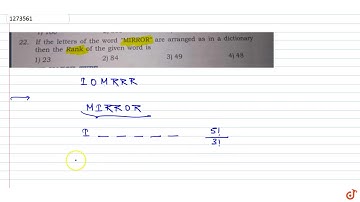 1273561
22. If the letters of the word "MIRROR" are arranged as in a dictionary
then the Rank of the given word is
1) 23 2) 84 3) 49 4) 48
I O M R R R
→ M I R R O R
I _ _ _ _ _ 5!/3!